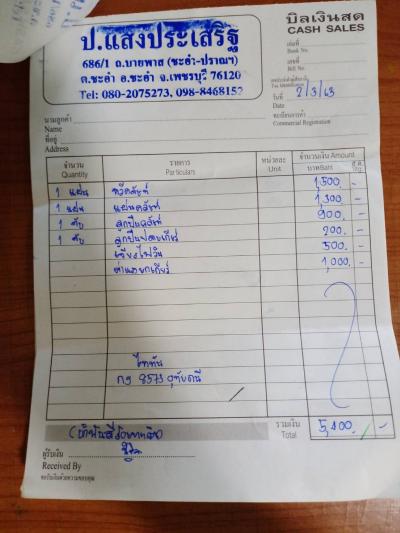 บิลเงินสด
CASH SALES
ป.แสงประเสริฐ
686/1 ถ.บายพาส (ชะอำ-ปราณฯ)
ต.ชะอำ อ.ชะอำ จ.เพชรบุรี 76120
Tel: 080-2075273, 098-8468152
เล่มที่
Book No.
เลขที่
Bill No.
วันที่ 2/3/63
Date
ทะเบียนการค้า
Commercial Registration
นามลูกค้า
Name
ที่อยู่
Address
จำนวน รายการ หน่วยละ จำนวนเงิน Amount
Quantity Particulars Unit บาท Baht ส.ต. Stg.
1 แผ่น หวีคลัทช์ 1,500. -
1 แผ่น แผ่นคลัทช์ 1,300 -
1 ตับ ลูกปืนคลัทช์ 900. -
1 ตับ ลูกปืน 200. -
500. -
ค่าแรงยกเกียร์ 1,000. -
ไททัน
8573 อุทัยธานี
รวมเงิน 5,400. -
Total
(ห้าพันสี่ร้อยบาทถ้วน)
ผู้รับเงิน
Received By
ขอบันทึกด้วยความขอบคุณ